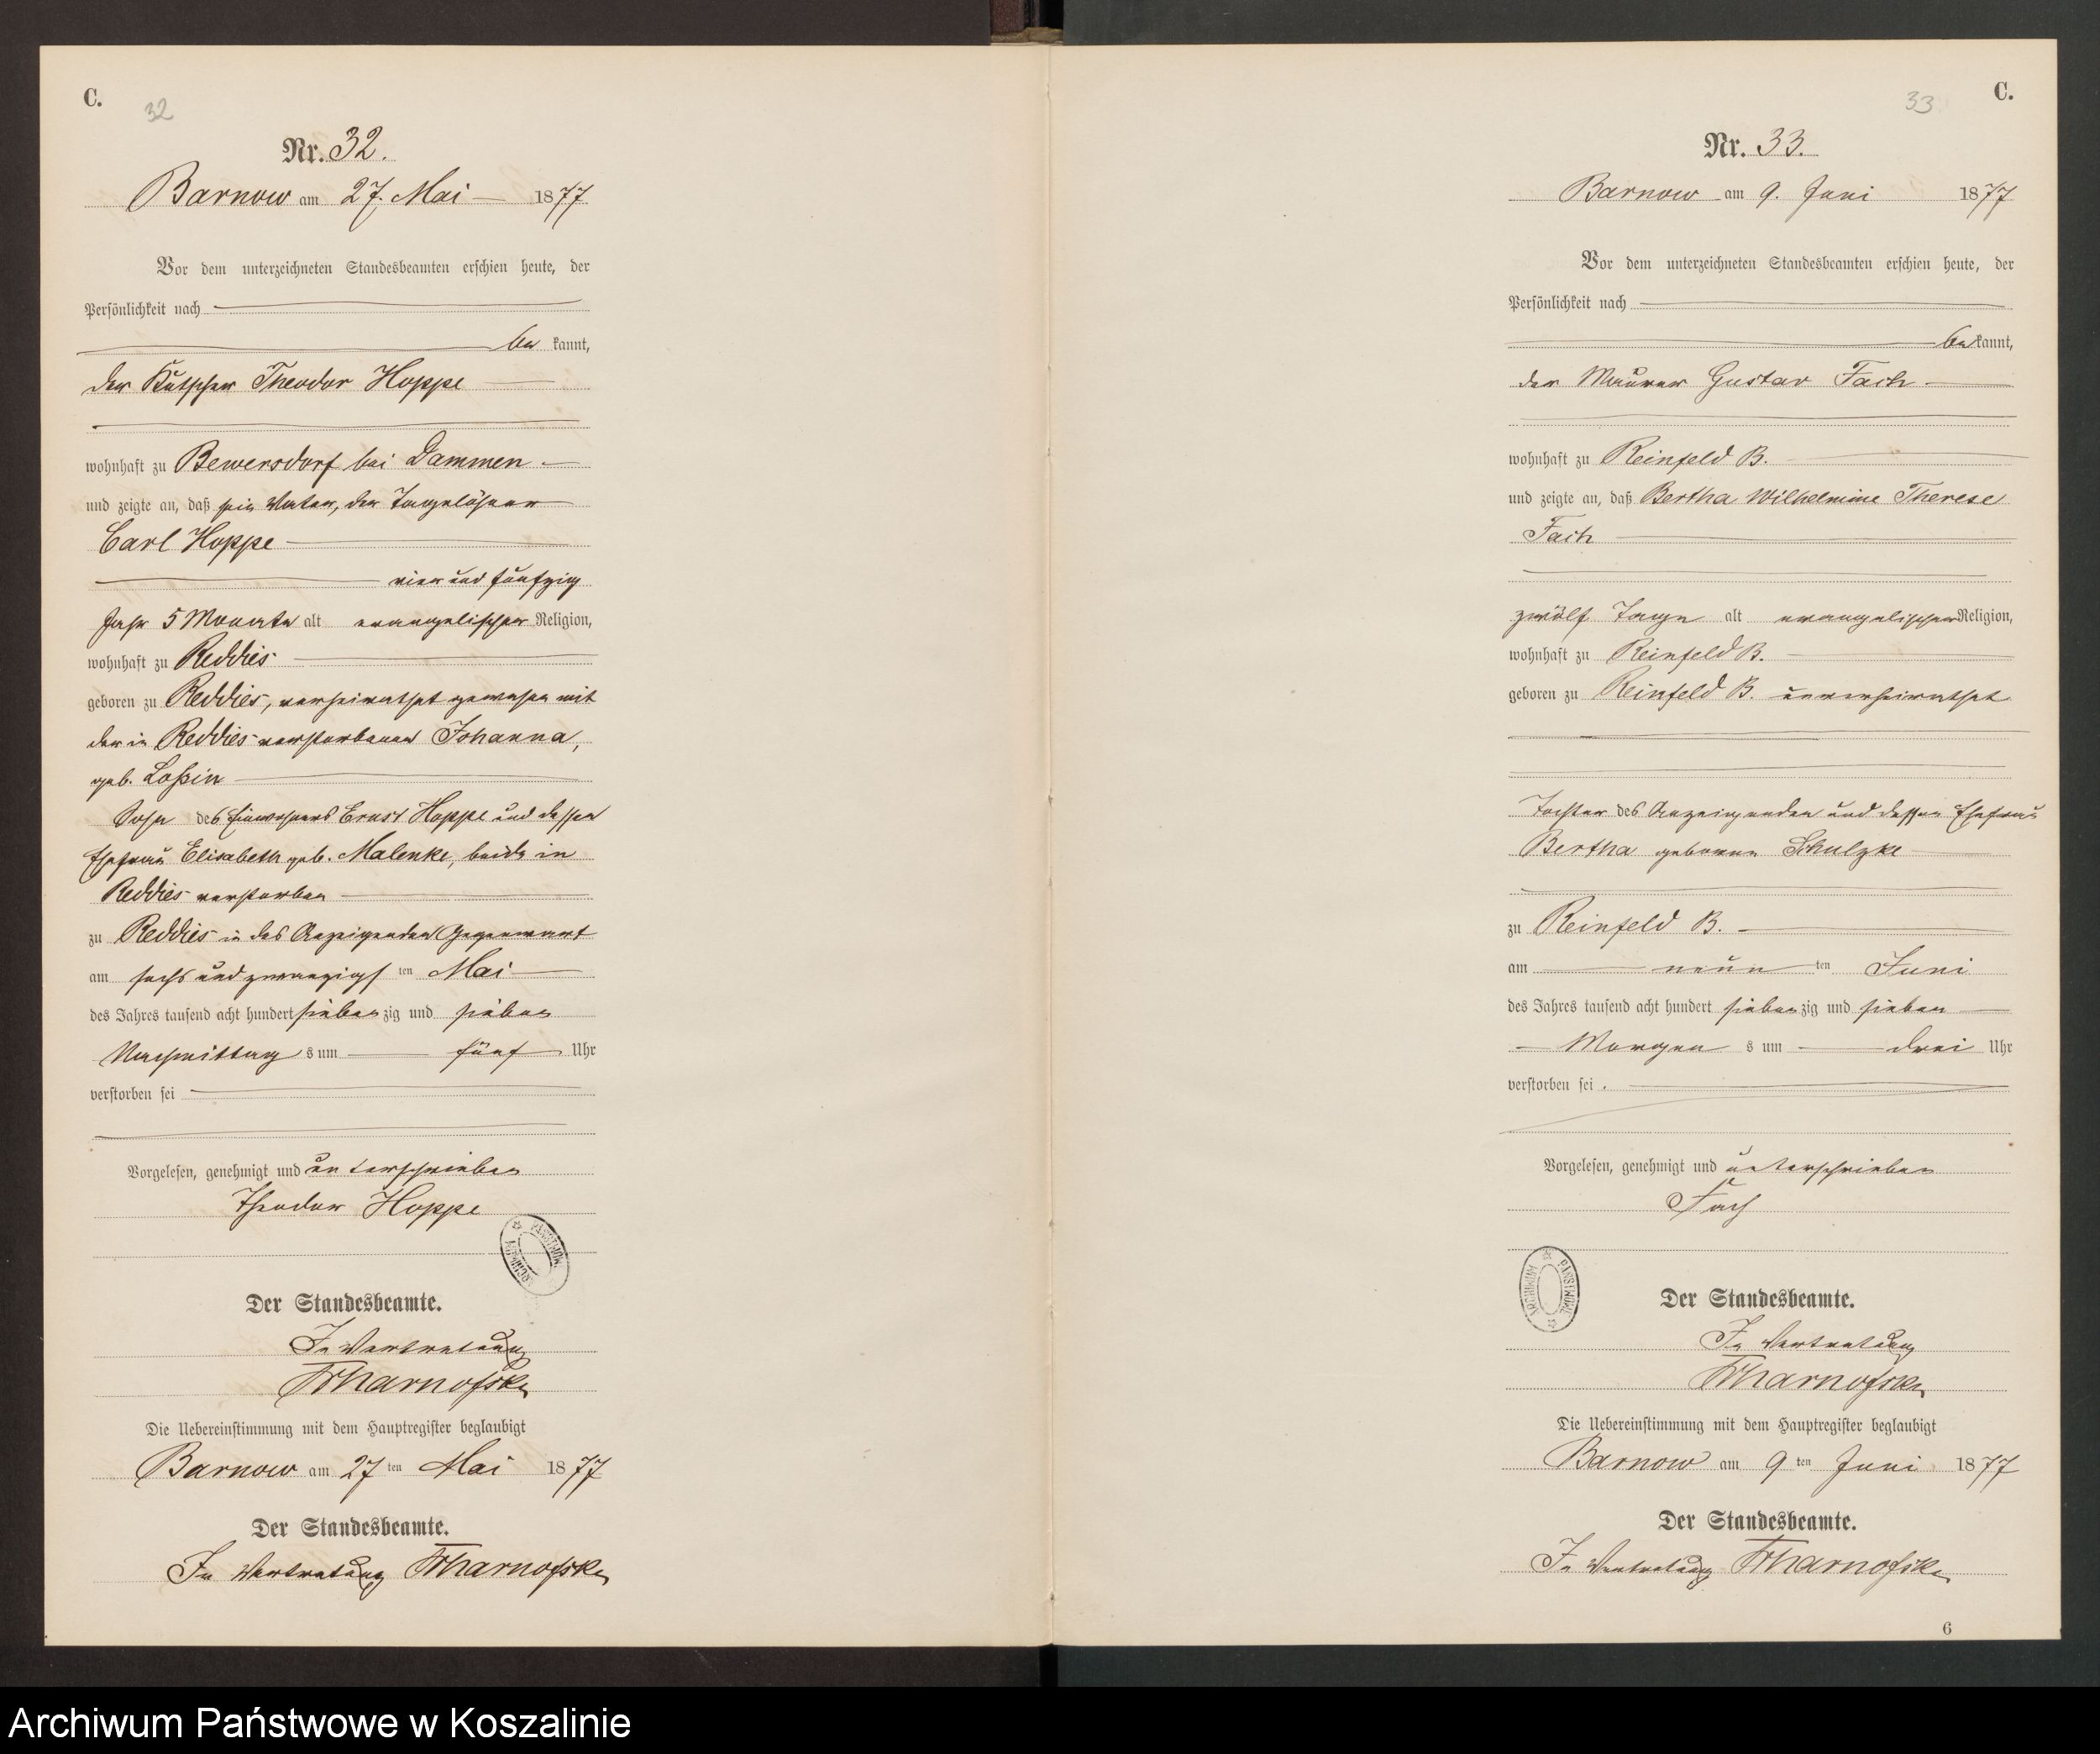 C.
32
Nr. 32.
Barnow am 27. Mai 1877
Vor dem unterzeichneten Standesbeamten erschien heute, der
Persönlichkeit nach
be kannt,
der Kutscher Theodor Hoppe
wohnhaft zu Bewersdorf bei Dammen
und zeigte an, daß sein Vater, der Tagelöhner
Carl Hoppe
vier und fünfzig
Jahr 5 Monate alt evangelischer Religion,
wohnhaft zu Reddies
geboren zu Reddies, verheirathet gewesen mit
der in Reddies verstorbenen Johanna,
geb. Loßin
Sohn des Einwohners Ernst Hoppe und dessen
Ehefrau Elisabeth geb. Malenke, beide in
Reddies verstorben
zu Reddies in des Anzeigenden Gegenwart
am sechs und zwanzigs ten Mai
des Jahres tausend acht hundert sieben zig und sieben
Nachmittag s um fünf Uhr
verstorben sei
Vorgelesen, genehmigt und unterschrieben
Theodor Hoppe
ARCHIWUM PAŃSTWOWE
Der Standesbeamte.
In Vertretung
Die Uebereinstimmung mit dem Hauptregister beglaubigt
Barnow am 27 ten Mai 1877
Der Standesbeamte.
In Vertretung
33
C.
Nr. 33.
Barnow am 9. Juni 1877
Vor dem unterzeichneten Standesbeamten erschien heute, der
Persönlichkeit nach
be kannt,
der Maurer Gustav Fach
wohnhaft zu Reinfeld B.
und zeigte an, daß Bertha Wilhelmine Therese
Fach
zwölf Tage alt evangelischer Religion,
wohnhaft zu Reinfeld B.
geboren zu Reinfeld B. unverheirathet
Tochter des Anzeigenden und dessen Ehefrau
Bertha geborene Schulzke
zu Reinfeld B.
am neun ten Juni
des Jahres tausend acht hundert sieben zig und sieben
Morgen s um drei Uhr
verstorben sei .
Vorgelesen, genehmigt und unterschrieben
Fach
ARCHIWUM PAŃSTWOWE
Der Standesbeamte.
In Vertretung
Die Uebereinstimmung mit dem Hauptregister beglaubigt
Barnow am 9 ten Juni 1877
Der Standesbeamte.
In Vertretung
6
Archiwum Państwowe w Koszalinie